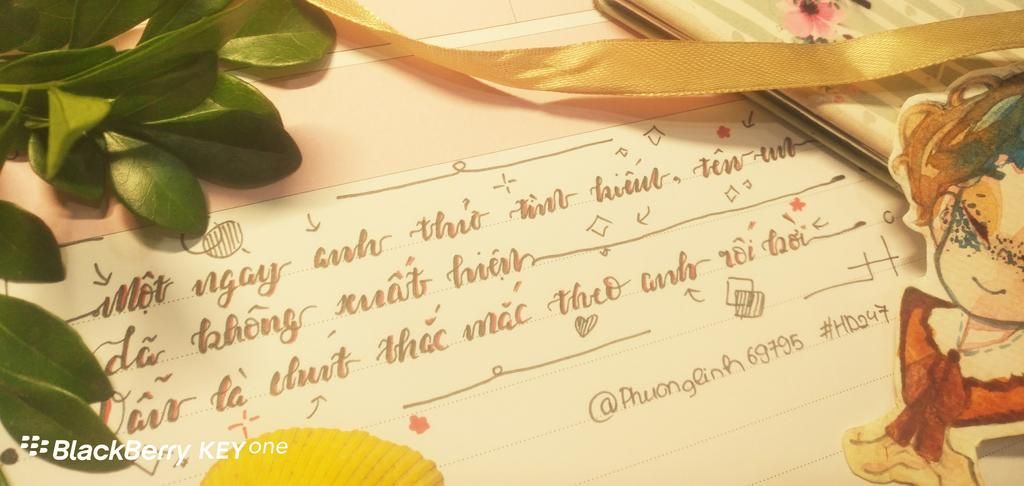 Một ngay anh thử tìm kiếm, tên em
đã không xuất hiện
Dẫu là chút thắc mắc theo anh rồi bời
@Phuonglinh69795 #HD247
BlackBerry KEYone